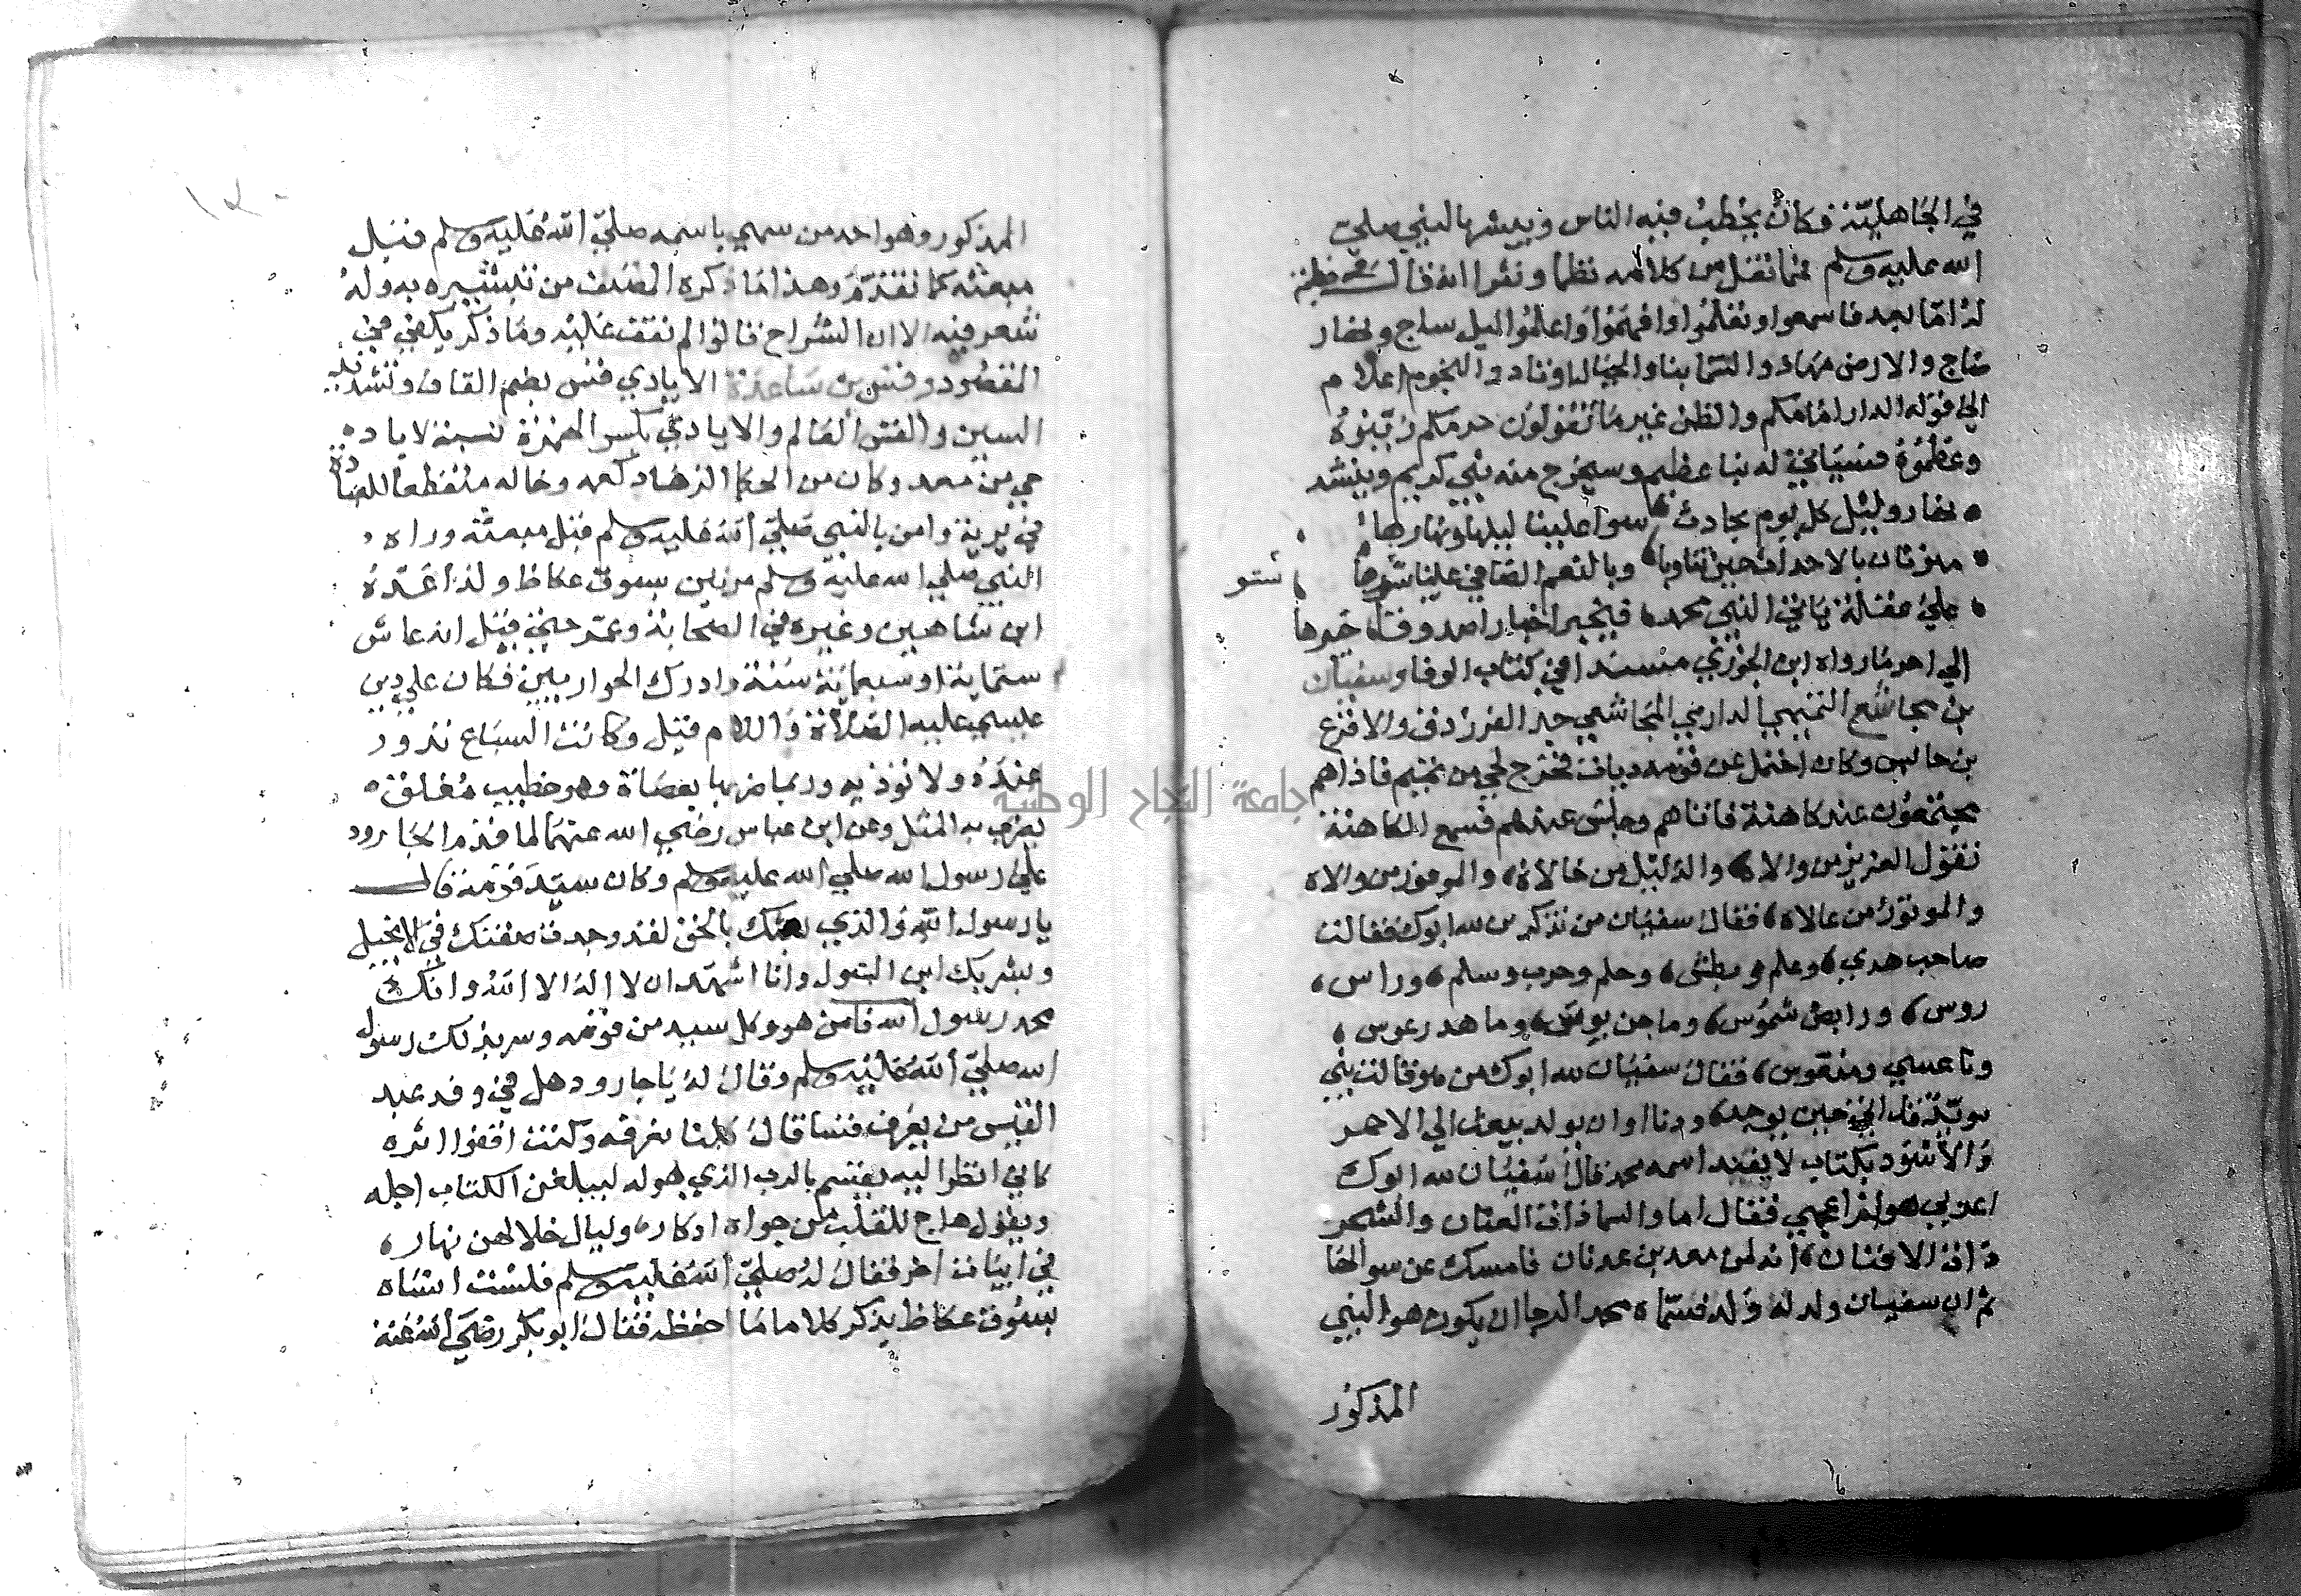 في الجاهلية فكان يخطب فيه الناس ويبشر بالنبي صلى
الله عليه وسلم فما نقل من كلامه نظما ونثرا انه قال في خطبة
له اما بعد فاسمعوا وتعلموا وافهموا واعلموا ليل ساج ونهار
ضاج والارض مهاد والسما بنا والجبال اوتاد والنجوم اعلام
الي قوله الدار امامكم والظن غير ما تقولون حرمكم زينوه
وعظموه فسياتي له نبا عظيم وسيخرج منه نبي كريم وينشد
نهار وليل كل يوم بحادث سوا علينا ليلها ونهارها
يؤوبان بالاحداث حين تاوبا وبالنعم الضافي علينا ستورها
ستو
علي غفلة ياتي النبي محمد فيخبر اخبارا صدوقا خبيرها
الي اخر ما رواه ابن الجوزي مسندا في كتاب الوفا وسفيان
بن مجاشع التميمي الدارمي المجاشعي جد الفرزدق والاقرع
بن حابس وكان احتمل عن قومه ديات فخرج لحي من تميم فاذا هم
مجتمعون عند كاهنة فاتاهم وجلس عندهم فسمع الكاهنة
تقول العزيز من والاه والذليل من خالاه والموفور من والاه
والموتور من عالاه فقال سفيان من تذكرين لله ابوك فقالت
صاحب هدي وعلم وبطش وحلم وحرب وسلم وراس
روس ورابض شموس وماحن بوس وماهد رعوس
وناعس ومنعوس فقال سفيان لله ابوك من هو قالت نبي
مويد قد اتي حين يوجد ودنا اوان يولد يبعث الي الاحمر
والاسود بكتاب لا يفند اسمه محمد قال سفيان لله ابوك
اعربي هو ام اعجمي فقال اما والسما ذات العنان والشجر
ذات الافنان انه لمن معد بن عدنان فامسك عن سوالها
ثم ان سفيان ولد له ولد فسماه محمد الرجا ان يكون هو النبي
المذكور
المذكور وهو احد من سمي باسمه صلي الله عليه وسلم قبل
مبعثه كما تقدم وهذا ما ذكره المصنف من تبشيره به وله
شعر فيه الا ان الشراح قالوا لم نقف عليه وما ذكر يكفي في
المقصود وقس بن ساعدة الايادي قس بضم القاف وتشديد
السين والقس العالم والايادي بكسر الهمزة نسبة لاياد
حي من معد وكان من الحكما الزهاد كعمه وخاله منقطعا للعبادة
في برية وامن بالنبي صلي الله عليه وسلم قبل مبعثه وراه
النبي صلي الله عليه وسلم مرتين بسوق عكاظ ولذا عده
ابن شاهين وغيره في الصحابة وعمر حتي قيل انه عاش
ستماية او سبعماية سنة وادرك الحواريين فكان علي دين
عيسي عليه الصلاة والسلام قيل وكانت السباع تزور
عنده ولا توذيه وربما ضربها بعصاة وهو خطيب مفلق
يضرب به المثل وعن ابن عباس رضي الله عنهما لما قدم الجارود
علي رسول الله صلي الله عليه وسلم وكان سيد قومه قال
يا رسول الله والذي بعثك بالحق لقد وجدت صفتك في الانجيل
وبشر بك ابن البتول وانا اشهد ان لا اله الا الله وانك
محمد رسول الله فامن هو وكل سيد من قومه وسر بذلك رسول
الله صلي الله عليه وسلم وقال له يا جارود هل في وفد عبد
القيس من يعرف قسا قال كلنا نعرفه وكنت اقفوا اثره
كاني انظر اليه يقسم بالرب الذي هو له ليبلغن الكتاب اجله
ويقول هاج للقلب من جواه ادكار وليال خلالهن نهار
في ابيات اخر فقال له صلي الله عليه وسلم فلست انساه
بسوق عكاظ يذكر كلاما ما احفظه فقال ابو بكر رضي الله عنه
جامعة النجاح الوطنية